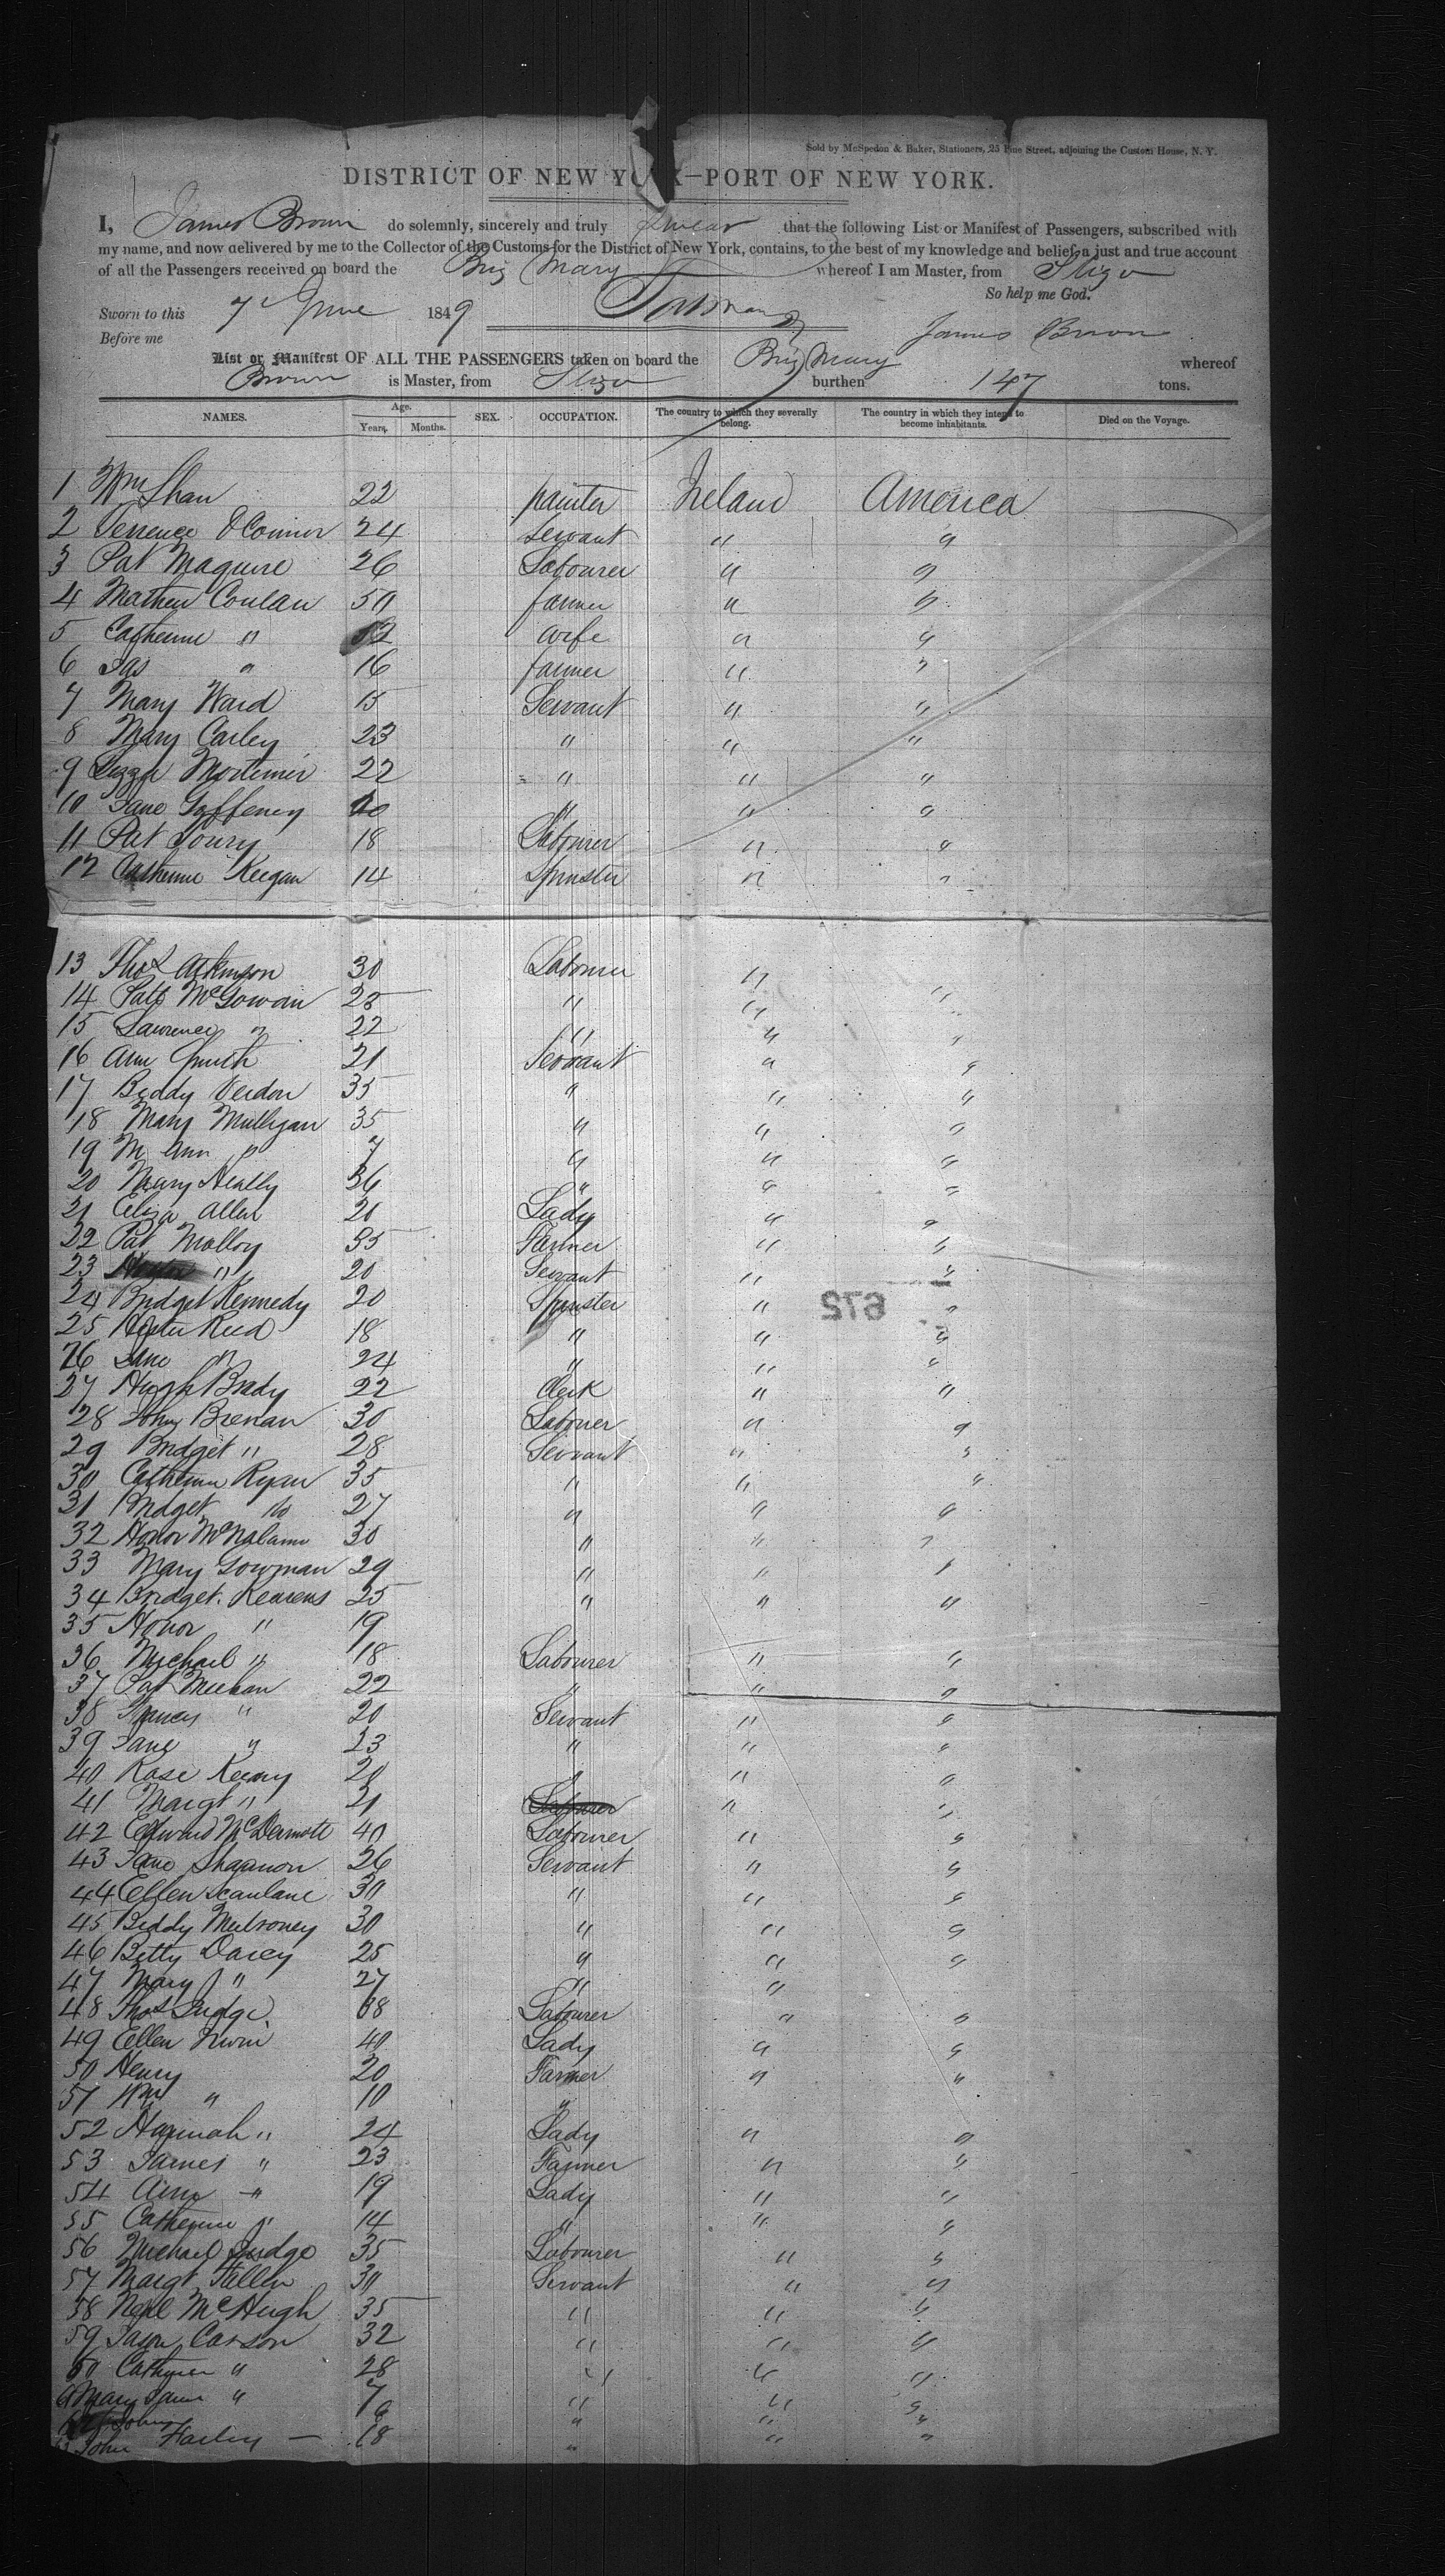 Sold by McSpedon & Baker, Stationers, 25 Pine Street, adjoining the Custom House, N. Y.
DISTRICT OF NEW YORK—PORT OF NEW YORK.
I, James Brown do solemnly, sincerely and truly swear that the following List or Manifest of Passengers, subscribed with
my name, and now delivered by me to the Collector of the Customs for the District of New York, contains, to the best of my knowledge and belief, a just and true account
of all the Passengers received on board the Brig Mary whereof I am Master, from Sligo
So help me God.
Sworn to this 7 June 1849
Before me James Brown
List or Manifest OF ALL THE PASSENGERS taken on board the Brig Mary whereof
Brown is Master, from Sligo burthen 147 tons.
NAMES. Age. SEX. OCCUPATION. The country to which they severally belong. The country in which they intend to become inhabitants. Died on the Voyage.
Years, Months.
1 Wm Shaw 22 painter Ireland America
2 Terrence O'Connor 24 Servant " "
3 Pat Maguire 26 Labourer " "
4 Mathew Conlan 50 farmer " "
5 Catherine " wife " "
6 Jas " 16 farmer " "
7 Mary Ward 15 Servant " "
8 Mary Carley 23 " " "
9 Mortimer 22 " " "
10 Jane Gaffeney " " "
11 Pat 18 Labourer " "
12 Catherine Keegan 14 Spinster " "
13 Thos Atkinson 30 Labourer "
14 Patt McGowan " " "
15 Lawrence " 22 " " "
16 Ann Smith 21 Servant " "
17 Biddy Verdon 35 " " "
18 Mary Mulligan 35 " " "
19 M Ann " 7 " " "
20 Mary Heally 36 " " "
21 Eliza Allen 20 Lady " "
22 Pat Malloy 35 Farmer " "
23 " 20 Servant " "
24 Bridget Kennedy 20 Spinster " "
25 Hester Reed 18 " " "
26 Jane " 24 " " "
27 Hugh Brady 22 Clerk " "
28 John Brenan 30 Labourer " "
29 Bridget " 28 Servant " "
30 Catherine Ryan 35 " " "
31 Bridget do 27 " " "
32 Honor McNalamo 30 " " "
33 Mary Gowman 29 " " "
34 Bridget Kearens 25 " " "
35 Honor " 19
36 Michael " 18 Labourer " "
37 Pat Meehan 22 " " "
38 " 20 Servant " "
39 Jane " 23 " " "
40 Rose Keany 20 " " "
41 Margt " 21 " "
42 Edward McDermott 40 Labourer " "
43 Jane Shannon 26 Servant " "
44 Ellen Scanlane 30 " " "
45 Biddy Mulroney 30 " " "
46 Betty Darcy 25 " " "
47 Mary " 27 " "
48 Thos Judge Labourer " "
49 Ellen Irwin 40 Lady " "
50 Henry 20 Farmer " "
51 Wm " 10 "
52 Hannah " 24 Lady " "
53 James " 23 Farmer " "
54 Ann " 19 Lady " "
55 Catherine " 14 " " "
56 Michael Judge 35 Labourer " "
57 Margt Fallen 30 Servant " "
58 Neal McHugh 35 " " "
59 Jason Carson 32 " " "
60 Catherine " 28 " " "
61 Mary Jane " 7 " " "
John " " "
63 John Farley — 18 " " "